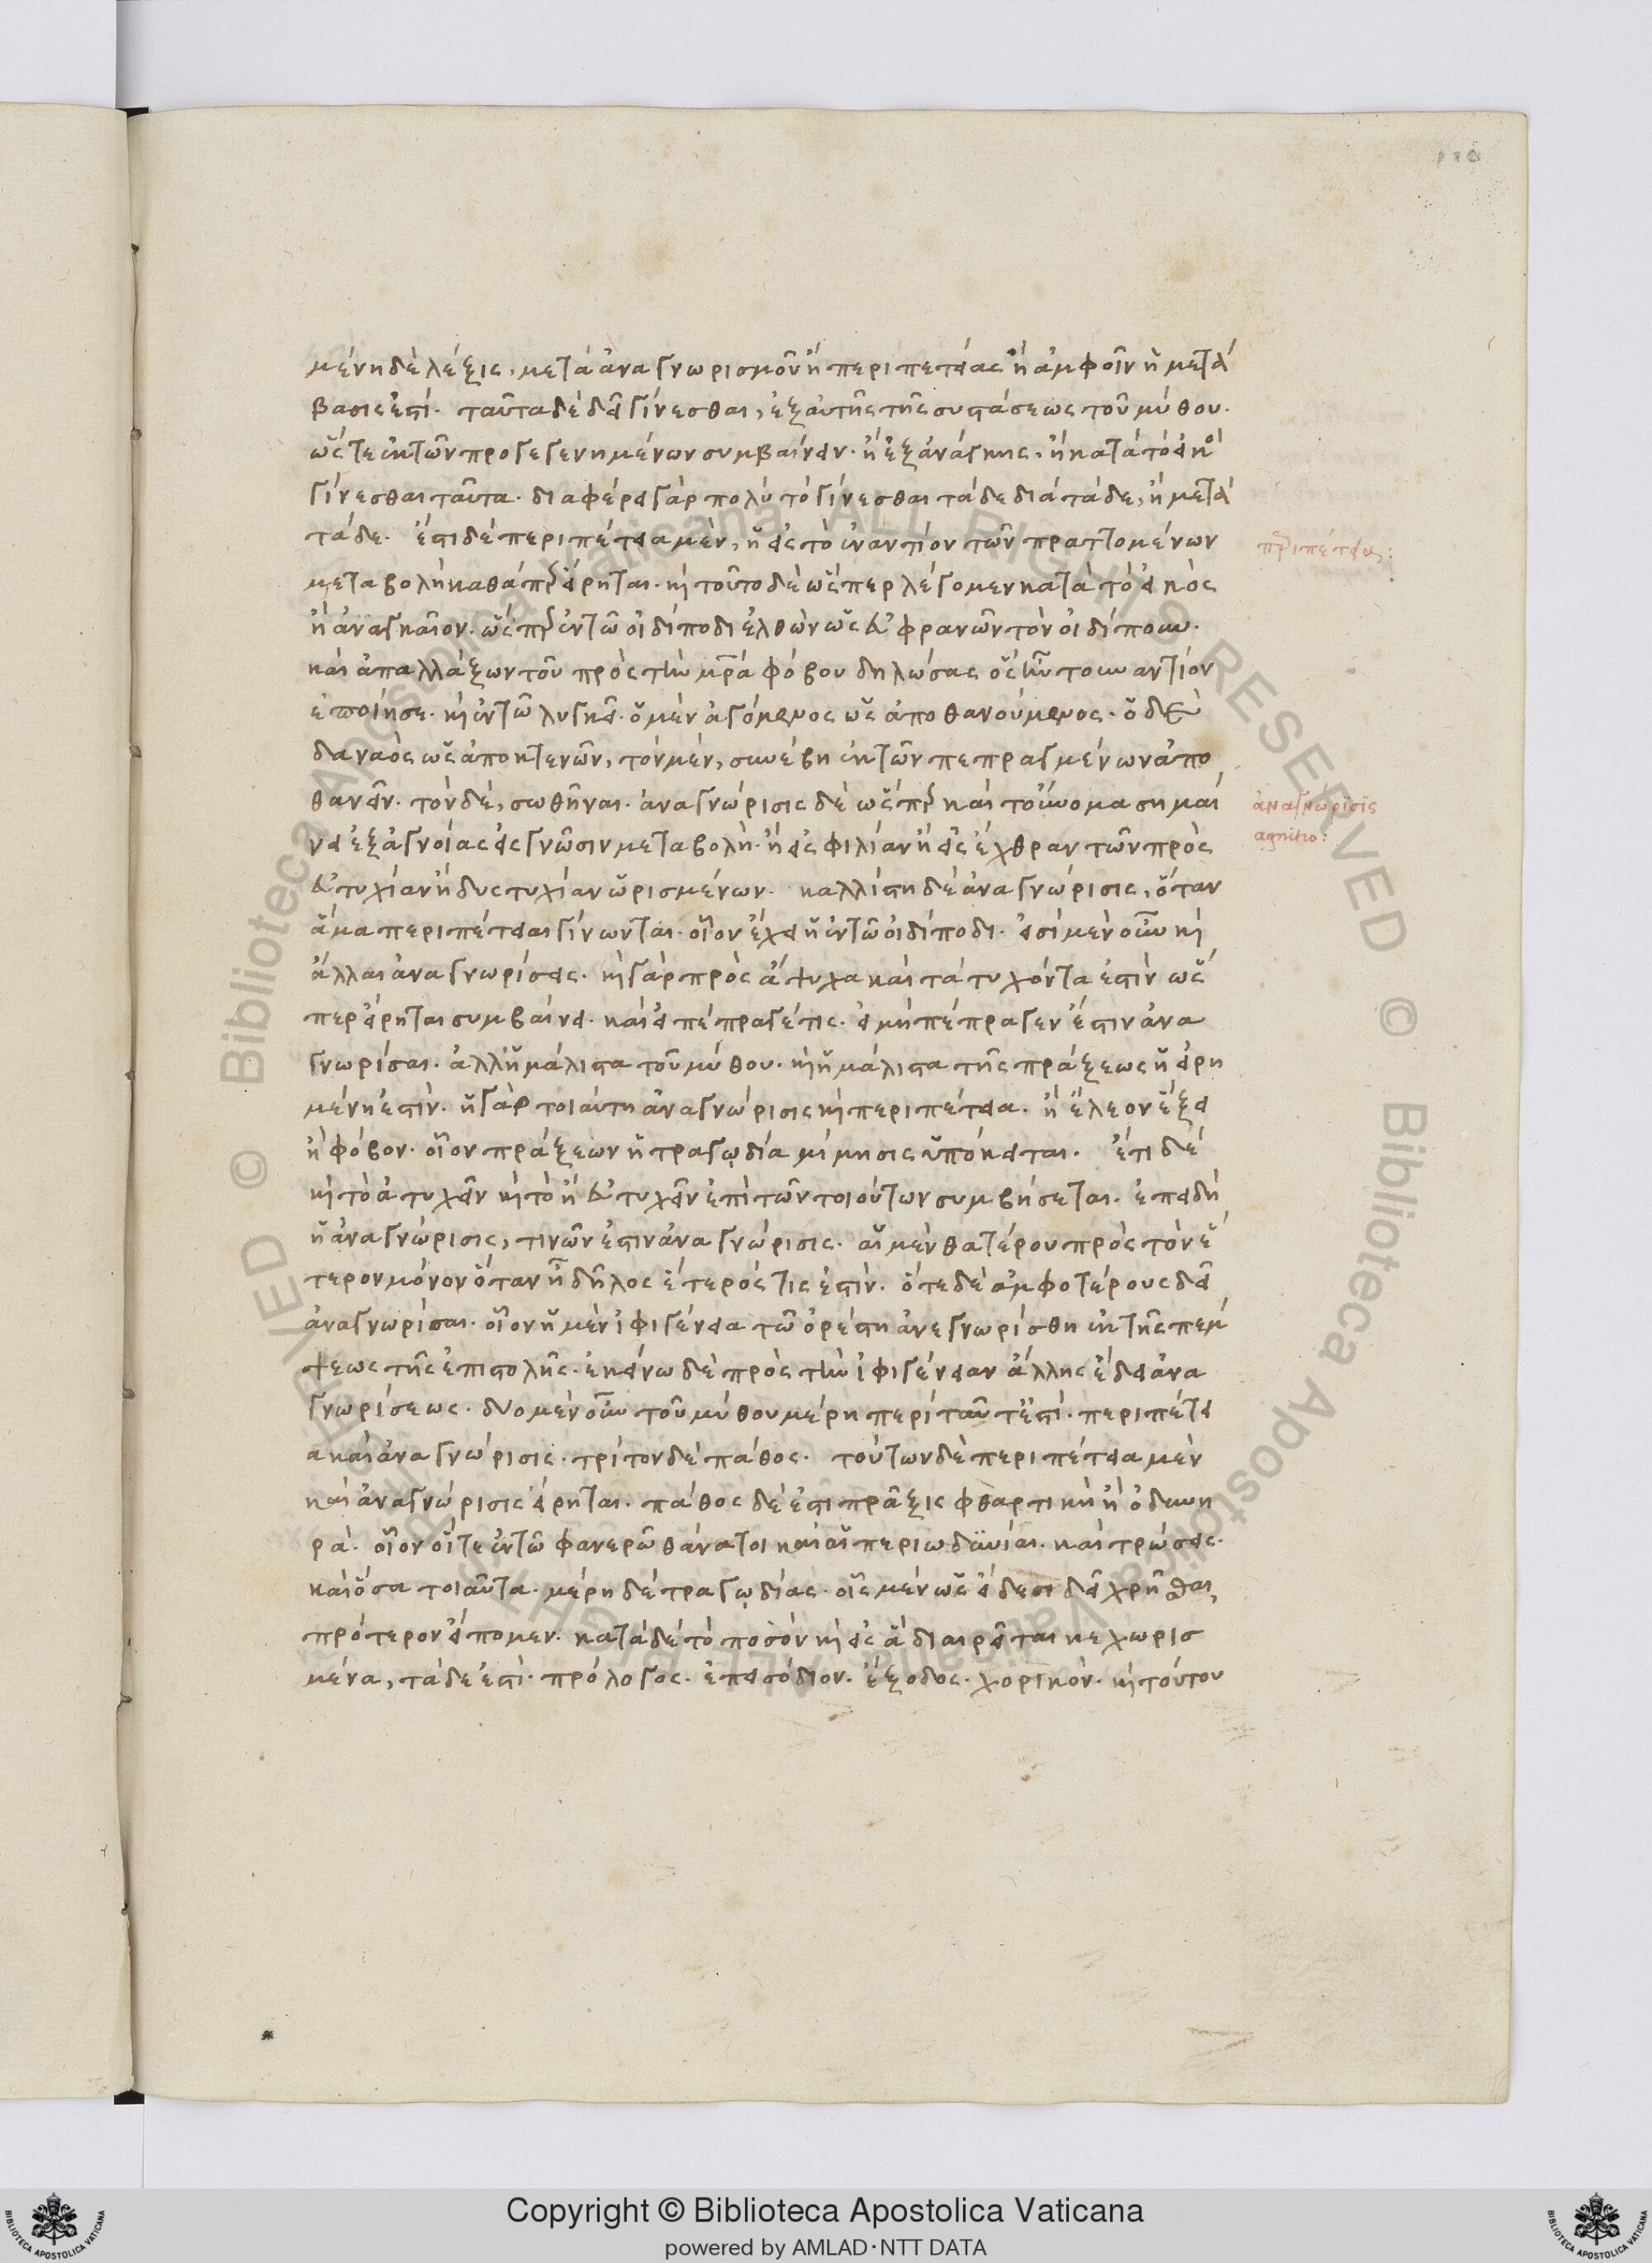 μένη δὲ λέξις, μετὰ ἀναγνωρισμοῦ ἢ περιπετείας ἢ ἀμφοῖν ἡ μετά
βασίς ἐστι. ταῦτα δὲ δεῖ γίνεσθαι, ἐξ αὐτῆς τῆς συστάσεως τοῦ μύθου.
ὥστε ἐκ τῶν προγεγενημένων συμβαίνειν. ἢ ἐξ ἀνάγκης. ἢ κατὰ τὸ εἰκὸ
γίνεσθαι ταῦτα. διαφέρει γὰρ πολὺ τὸ γίνεσθαι τάδε διὰ τάδε, ἢ μετὰ
τάδε. ἔστι δὲ περιπέτεια μὲν, ἡ εἰς τὸ ἐναντίον τῶν πραττομένων
περιπέτεια:
μεταβολὴ καθάπερ εἴρηται. καὶ τοῦτο δὲ ὥσπερ λέγομεν κατὰ τὸ εἰκὸς
ἢ ἀναγκαῖον. ὥσπερ ἐν τῶ οἰδίποδι ἐλθὼν ὡς εὐφρανῶν τὸν οἰδίπουν.
καὶ ἀπαλλάξων τοῦ πρὸς τὴν μρα φόβου δηλώσας ὃς ἦν τουναντίον
ἐποίησε. καὶ ἐν τῶ λυγκεῖ. ὁ μὲν ἀγόμενος ὡς ἀποθανούμενος. ὁ δὲ
δαναὸς ὡς ἀποκτενῶν, τὸν μὲν, συνέβη ἐκ τῶν πεπραγμένων ἀπο
θανεῖν. τὸν δὲ, σωθῆναι. ἀναγνώρισις δὲ ὥσπερ καὶ τοὔνομα σημαί
ἀναγνώρισις
agnitio:
νει ἐξ ἀγνοίας εἰς γνῶσιν μεταβολὴ. ἢ εἰς φιλίαν ἢ εἰς ἔχθραν τῶν πρὸς
εὐτυχίαν ἢ δυστυχίαν ὡρισμένων. καλλίστη δὲ ἀναγνώρισις, ὅταν
ἅμα περιπέτειαι γίνωνται. οἷον ἔχει ἡ ἐν τῶ οἰδίποδι. εἰσὶ μὲν οὖν καὶ
ἄλλαι ἀναγνωρίσεις. καὶ γὰρ πρὸς ἄψυχα καὶ τὰ τυχόντα ἐστὶν ὥσ
περ εἴρηται συμβαίνει. καὶ εἰ πέπραγέ τις. εἰ μὴ πέπραγεν ἔστιν ἀνα
γνωρίσαι. ἀλλ ἡ μάλιστα τοῦ μύθου. καὶ ἡ μάλιστα τῆς πράξεως ἡ εἰρη
μένη ἐστίν. ἡ γὰρ τοιαύτη ἀναγνώρισις καὶ περιπέτεια. ἢ ἔλεον ἕξει
ἢ φόβον. οἷον πράξεων ἡ τραγῳδία μίμησις ὑπόκειται. ἔτι δὲ
καὶ τὸ ἀτυχεῖν καὶ τὸ ἢ εὐτυχεῖν ἐπὶ τῶν τοιούτων συμβήσεται. ἐπειδὴ
ἡ ἀναγνώρισις, τινῶν ἐστιν ἀναγνώρισις. αἱ μὲν θατέρου πρὸς τὸν ἕ
τερον μόνον ὅταν ἦ δῆλος ἕτερός τις ἐστίν. ὁτὲ δὲ ἀμφοτέρους δεῖ
ἀναγνωρίσαι. οἷον ἡ μὲν ἰφιγένεια τῶ ὀρέστη ἀνεγνωρίσθη ἐκ τῆς πέμ
ψεως τῆς ἐπιστολῆς. ἐκείνω δὲ πρὸς τὴν ἰφιγένειαν ἄλλης ἔδει ἀνα
γνωρίσεως. δύο μὲν οὖν τοῦ μύθου μέρη περὶ ταῦτ ἐστί. περιπέτει
α καὶ ἀναγνώρισις. τρίτον δὲ πάθος. τούτων δὲ περιπέτεια μὲν
καὶ ἀναγνώρισις εἴρηται. πάθος δέ ἐστι πρᾶξις φθαρτικὴ ἢ ὀδυνη
ρά. οἷον οἵ τε ἐν τῶ φανερῶ θάνατοι καὶ αἱ περιωδυνίαι. καὶ τρώσεις.
καὶ ὅσα τοιαῦτα. μέρη δὲ τραγῳδίας. οἷς μὲν ὡς εἴδεσι δεῖ χρῆσθαι
πρότερον εἴπομεν. κατὰ δὲ τὸ ποσὸν καὶ εἰς ἃ διαιρεῖται κεχωρισ
μένα, τάδε ἐστὶ. πρόλογος. ἐπεισόδιον. ἔξοδος. χορικὸν. καὶ τούτου
Copyright © Biblioteca Apostolica Vaticana
powered by AMLAD·NTT DATA